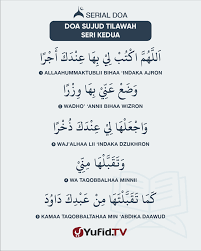 SERIAL DOA
DOA SUJUD TILAWAH
SERI KEDUA
اَللَّهُمَّ اكْتُبْ لِي بِهَا عِنْدَكَ أَجْرًا
1 ALLAAHUMMAKTUBLII BIHAA 'INDAKA AJRON
وَضَعْ عَنِّي بِهَا وِزْرًا
2 WADHO' 'ANNII BIHAA WIZRON
وَاجْعَلْهَا لِي عِنْدَكَ ذُخْرًا
3 WAJ'ALHAA LII 'INDAKA DZUKHRON
وَتَقَبَّلْهَا مِنِّي
4 WA TAQOBBALHAA MINNII
كَمَا تَقَبَّلْتَهَا مِنْ عَبْدِكَ دَاوُدَ
5 KAMAA TAQOBBALTAHAA MIN 'ABDIKA DAAWUD
Yufid.TV